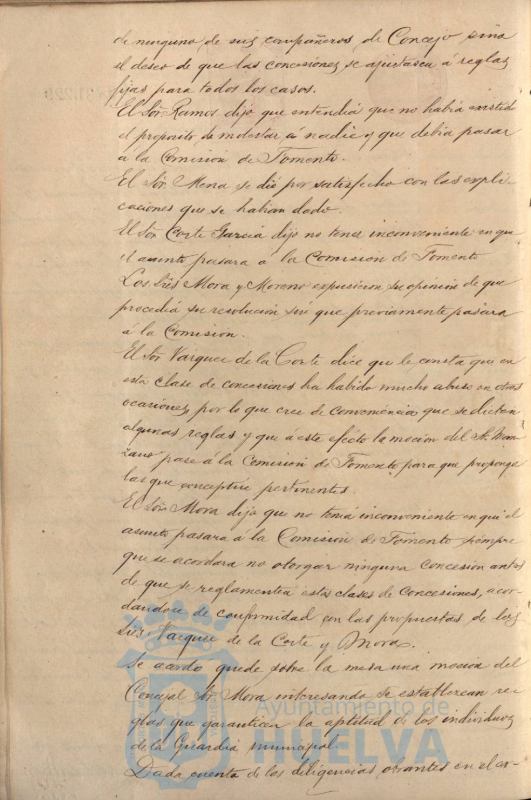 de ninguno de sus compañeros de Concejo sino
el deseo de que las concesiones se ajustasen á reglas
fijas para todos los casos.
El Sór Ramos dijo que entendia que no habia existido
el proposito de molestar á nadie y que debia pasar
á la Comision de Fomento.
El Sór Mena se dió por satisfecho con las expli-
caciones que se habian dado.
El Sór Corte Garcia dijo no tener inconveniente en que
el asunto pasara á la Comision de Fomento
Los Sres Mora y Moreno expusieron su opinion de que
procedia su resolucion sin que previamente pasara
á la Comision.
El Sór Vazquez de la Corte dice que le consta que en
esta clase de concesiones ha habido mucho abuso en otras
ocasiones, por lo que cree de conveniencia que se dicten
algunas reglas y que á este efecto la mocion del Sr. Man-
zano pase á la Comision de Fomento para que proponga
las que conceptúe pertinentes.
El Sór Mora dijo que no tenia inconveniente en qui el
asunto pasara á la Comision de Fomento siempre
que se acordara no otorgar ninguna concesion antes
de que se reglamenten estas clases de concesiones, acor-
dandose de conformidad con las propuestas de los
Sres Vazquez de la Corte y Mora.
Se acordó quede sobre la mesa una mocion del
Concejal Sór Mora interesando se establezcan re-
glas que garanticen la aptitud de los individuos
de la Guardia municipal.
Dada cuenta de las diligencias obrantes en el ex-
Ayuntamiento de
HUELVA